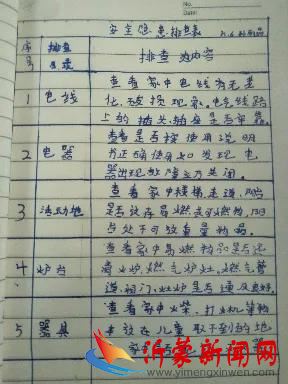 No.
Date
安全隐患排查表
序号 排查目录 排查内容
1 电线 查看家中电线有无老
化、破损现象。电线线路
上的插头插座是否牢靠。
2 电器 查看是否按使用说明
书正确使用
发现电
器出现故障立刻关闭
3 活动地 查看家中楼梯、走道、阳台
是否放有易燃或可燃物,阳
台处于可放重量物品。
4 炉台 查看家中易燃物品是否远
离火炉、燃气炉灶。燃气管
道、阀门、灶炉是否通风良好。
5 器具 查看家中火柴、打火机等物
放在儿童取不到的地
沂蒙新闻网
www.yimengxinwen.com